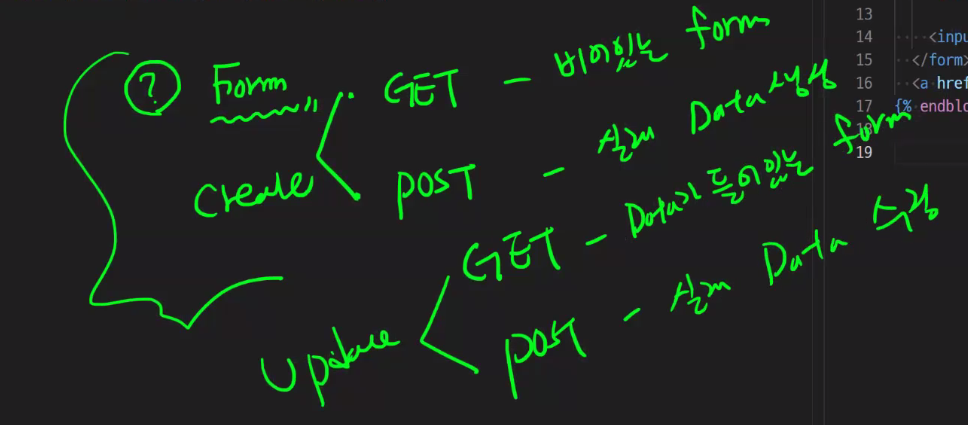 ? Form
Create
GET - 비어있는 form
POST - 실제 Data 생성
Update
GET - Data가 들어있는 form
POST - 실제 Data 수정
13
14 ····<inpu
15 ··</form>
16 ··<a href
17 {% endblo
19